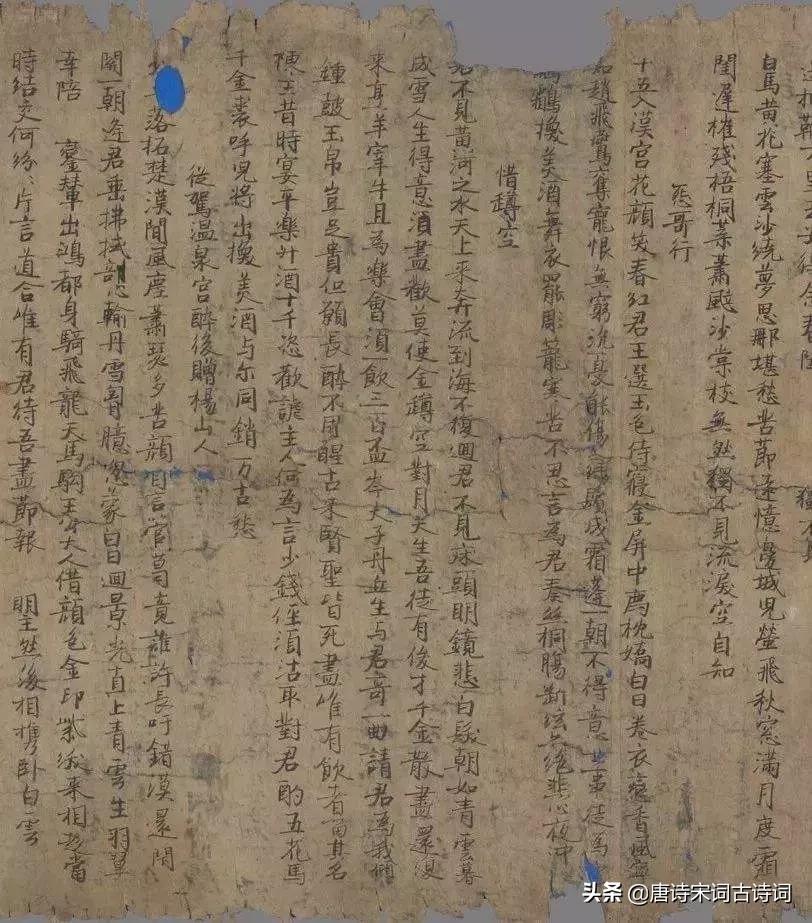 白馬黃花塞雲沙繞夢思那堪愁苦節遠憶邊城兒螢飛秋窓滿月度霜
閨遲摧殘梧桐葉蕭颯沙棠枝無然獨不見流淚空自知
怨哥行
十五入漢宮花顏笑春紅君王選玉色侍寢金屏中薦枕嬌白日卷衣戀香風寧
知趙飛鷰奪寵恨無窮沉憂能傷人綠鬢成霜蓬一朝不得意世事徒為
鸘換美酒舞衣罷彫籠寒苦不忍言為君奏絲桐腸斷弦亦絕悲心夜忡
惜罇空
君不見黃河之水天上來奔流到海不復迴君不見床頭明鏡悲白髮朝如青雲暮
成雪人生得意須盡歡莫使金罇空對月天生吾徒有俊才千金散盡還復
來烹羊宰牛且為樂會須一飲三百盃岑夫子丹丘生與君哥一曲請君為我傾
鍾皷玉帛豈足貴但願長醉不用醒古來賢聖皆死盡唯有飲者留其名
陳王昔時宴平樂斗酒十千恣歡謔主人何為言少錢徑須沽取對君酌五花馬
千金裘呼兒將出換美酒与尔同銷万古愁
從駕溫泉宮醉後贈楊山人
落拓楚漢間風塵蕭瑟多苦顏自言管葛竟誰許長吁錯漠還閇
關一朝逢君垂拂拭剖心輸丹雪胷臆忽蒙白日迴景光直上青雲生羽翼
幸陪 鑾輦出鴻都身騎飛龍天馬駒王公大人借顏色金印紫綬來相趁當
時結交何紛々片言道合唯有君待吾盡節報 明主然後相攜臥白雲
头条@唐诗宋词古诗词